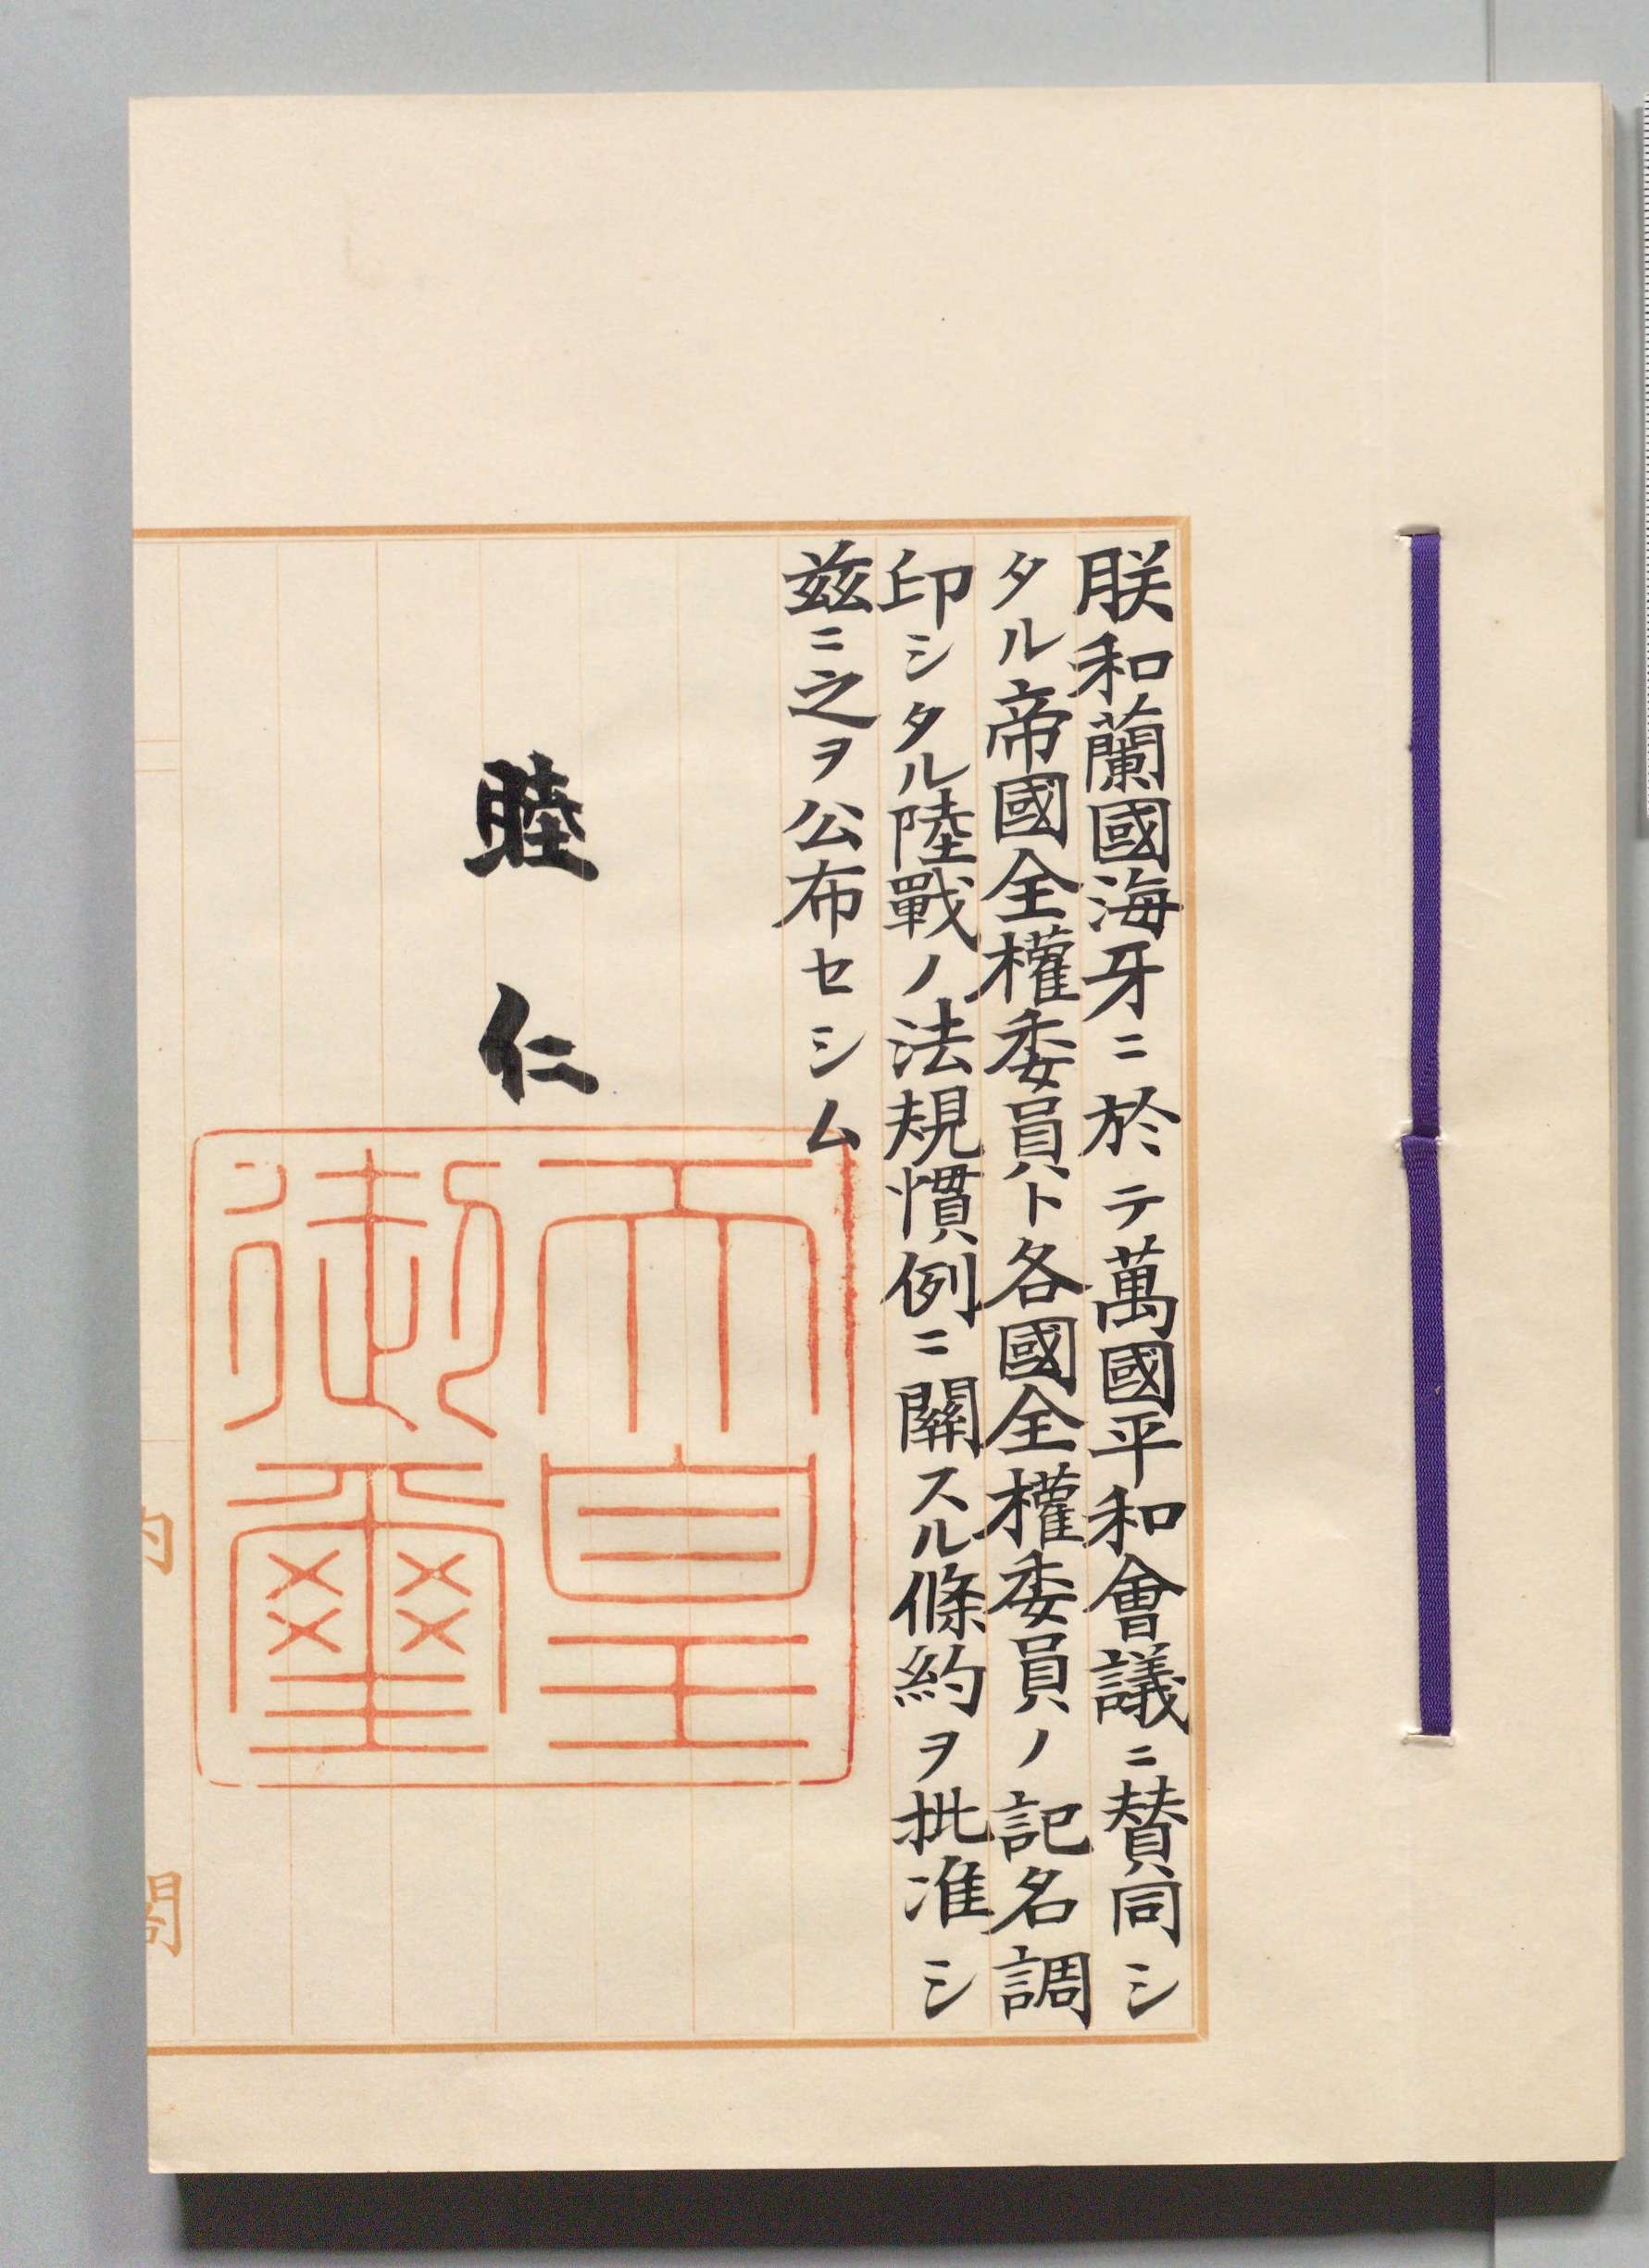 朕和蘭國海牙ニ於テ萬國平和會議ニ賛同シ
タル帝國全權委員ト各國全權委員ノ記名調
印シタル陸戰ノ法規慣例ニ關スル條約ヲ批准シ
茲ニ之ヲ公布セシム
睦仁
天皇
御璽
内閣